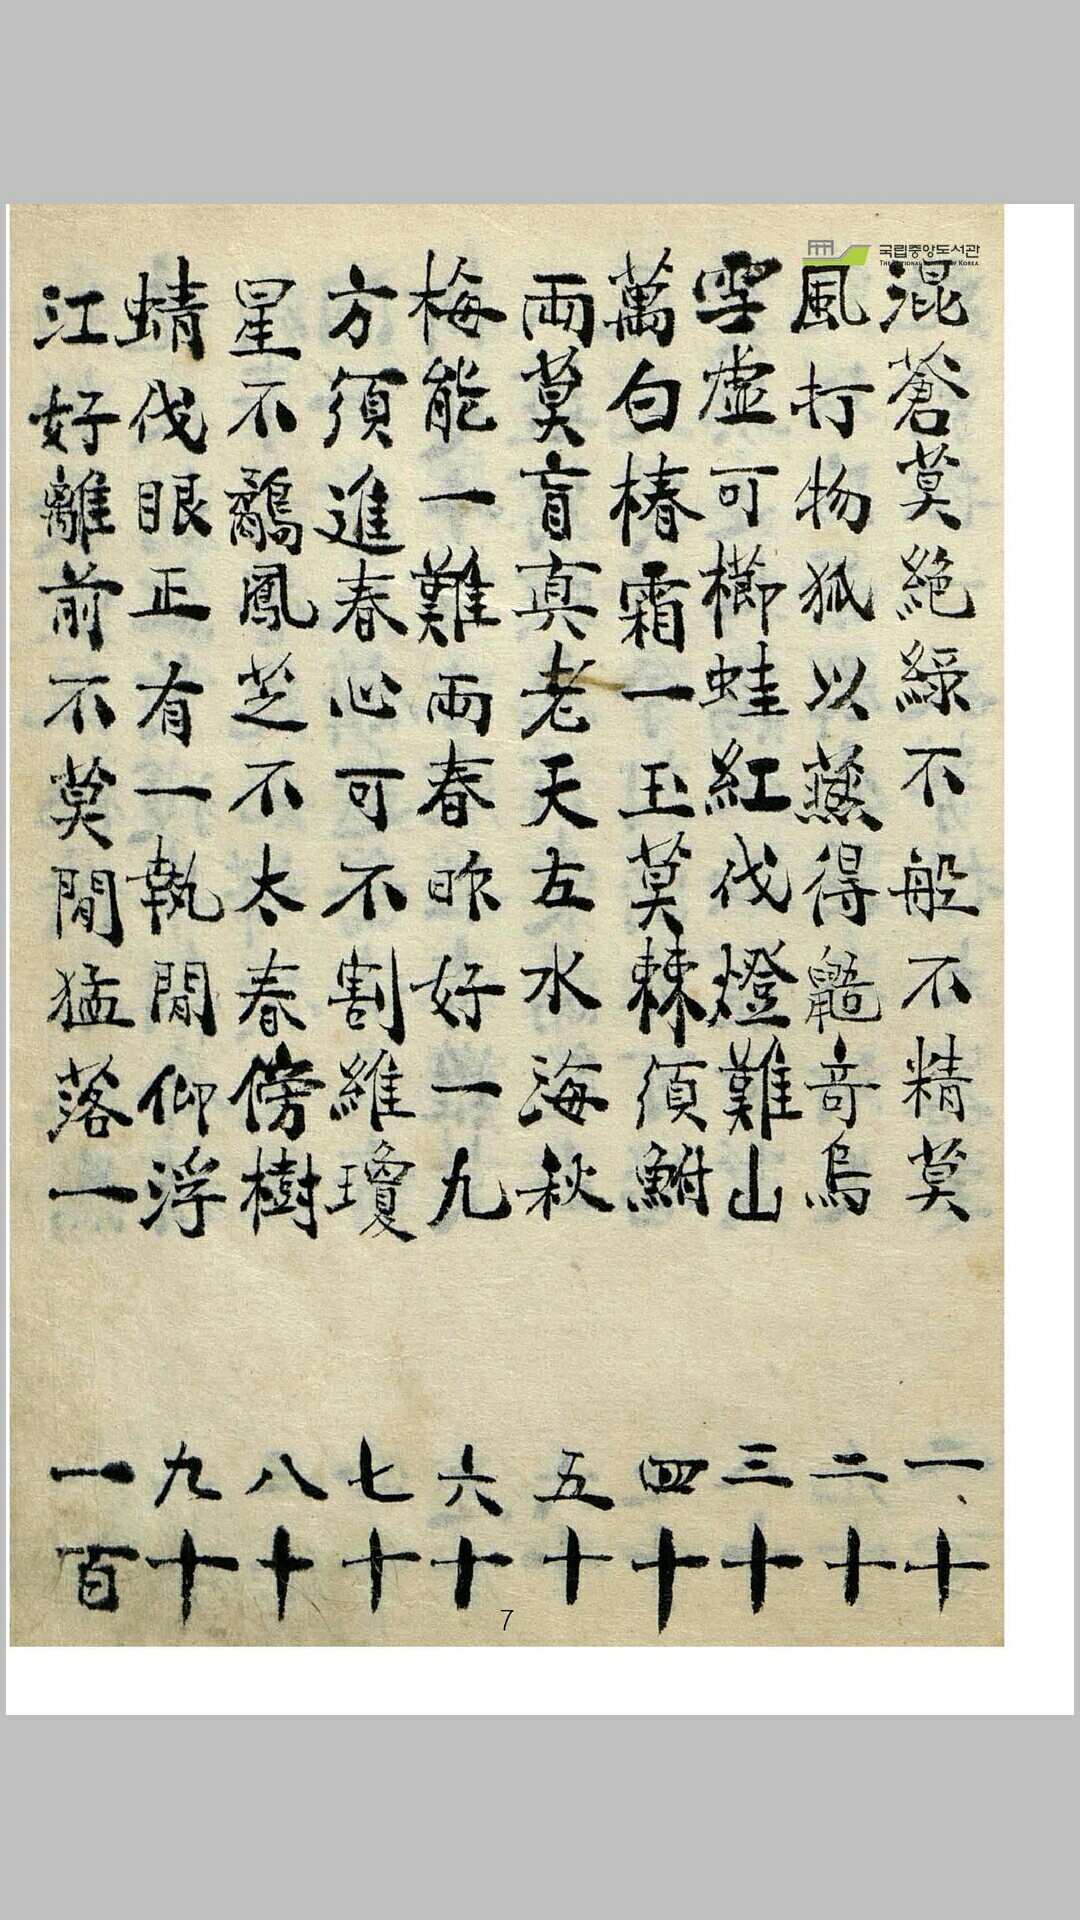 국립중앙도서관
THE NATIONAL LIBRARY OF KOREA
混蒼莫絶綠不般不精莫 一十
風打物狐以燕得奇烏 二十
空虛可櫛蛙紅伐燈難山 三十
萬白椿霜一玉莫棘須鮒 四十
兩莫盲真老天左水海秋 五十
梅能一難兩春昨好一九 六十
方須進春心可不割維瓊 七十
星不鷸鳳芝不太春傍樹 八十
蜻伐眼正有一執閒仰浮 九十
江好離前不莫閒猛落一 一百
7